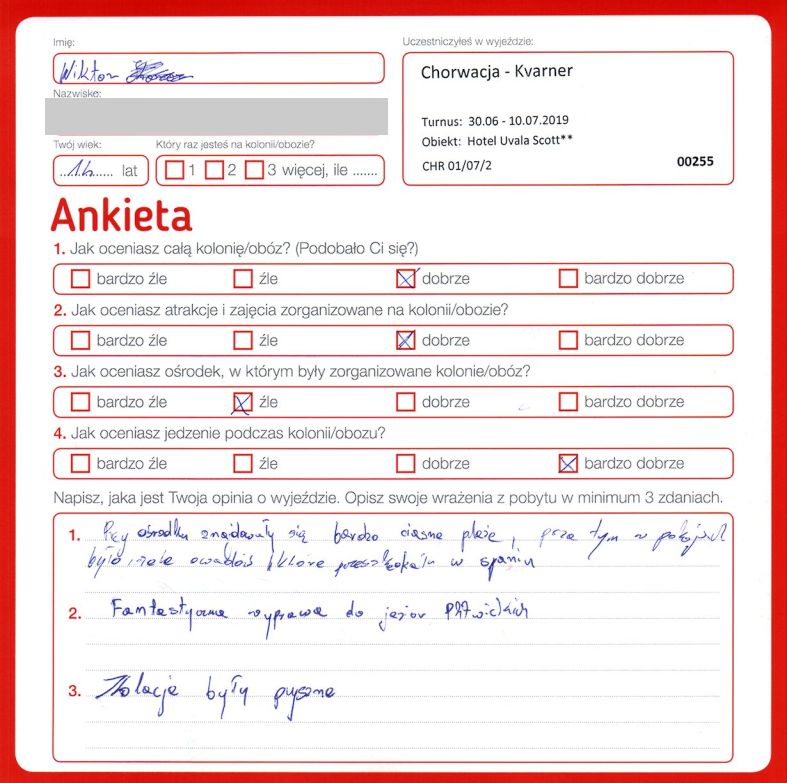 Imię:
Wiktor
Nazwisko:
Twój wiek:
Który raz jesteś na kolonii/obozie?
lat
1 2 3 więcej, ile .......
Uczestniczyłeś w wyjeździe:
Chorwacja - Kvarner
Turnus: 30.06 - 10.07.2019
Obiekt: Hotel Uvala Scott**
CHR 01/07/2 00255
Ankieta
1. Jak oceniasz całą kolonię/obóz? (Podobało Ci się?)
bardzo źle źle dobrze bardzo dobrze
2. Jak oceniasz atrakcje i zajęcia zorganizowane na kolonii/obozie?
bardzo źle źle dobrze bardzo dobrze
3. Jak oceniasz ośrodek, w którym były zorganizowane kolonie/obóz?
bardzo źle źle dobrze bardzo dobrze
4. Jak oceniasz jedzenie podczas kolonii/obozu?
bardzo źle źle dobrze bardzo dobrze
Napisz, jaka jest Twoja opinia o wyjeździe. Opisz swoje wrażenia z pobytu w minimum 3 zdaniach.
1. Przy ośrodku znajdowały się bardzo ciasne plaże, prze tym w pokojach
było owadów które przeszkadzały w spaniu
2. Fantastyczna wyprawa do jezior
3. Kolacje były pyszne